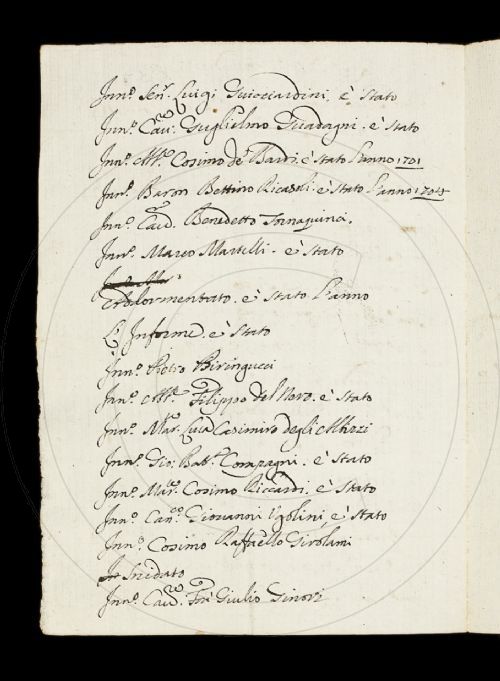 Inn.º Sen.r Luigi Guicciardini, è stato
Inn.º Cav. Guglielmo Guadagni. è stato
Inn.º Cosimo de' Bardi. è stato l'anno 1701
Inn.º Baron Bettino Ricasoli. è stato l'anno 1704
Inn.º Cav. Benedetto Tornaquinci.
Inn.º Marco Martelli. è stato
è stato l'anno
L'Informe. è stato
Inn.º Pietro Biringucci
Inn.º Filippo del Nero. è stato
Inn.º Mar. Luca Casimiro degli Albizzi
Inn.º Gio. Batt.a Compagni. è stato
Inn.º Mar. Cosimo Riccardi. è stato
Inn.º Can.º Giovanni Ugolini, è stato
Inn.º Cosimo Raffaello Girolami
Inn.º Cav. Giulio Ginori